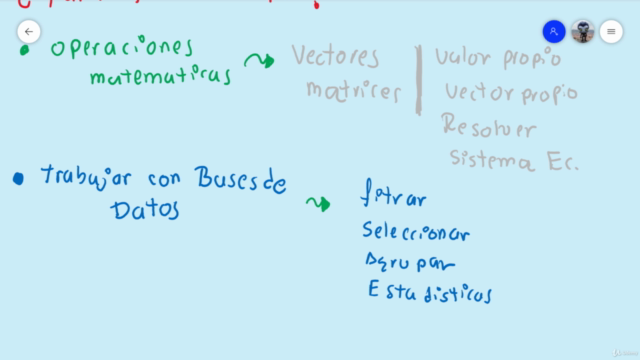 • operaciones
matematicas
Vectores
matrices
valor propio
vector propio
Resolver
Sistema Ec.
• trabajar con Bases de
Datos
filtrar
Seleccionar
Agrupar
Estadisticos